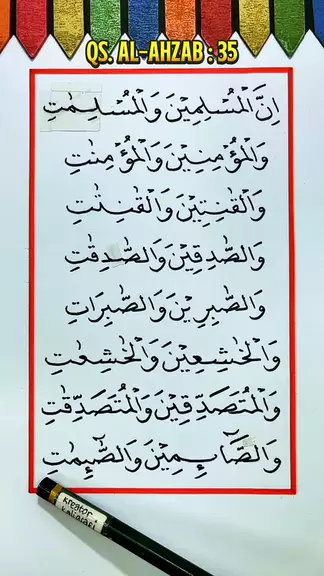 QS. AL-AHZAB : 35
اِنَّ الْمُسْلِمِيْنَ وَالْمُسْلِمٰتِ
وَالْمُؤْمِنِيْنَ وَالْمُؤْمِنٰتِ
وَالْقٰنِتِيْنَ وَالْقٰنِتٰتِ
وَالصّٰدِقِيْنَ وَالصّٰدِقٰتِ
وَالصّٰبِرِيْنَ وَالصّٰبِرَاتِ
وَالْخٰشِعِيْنَ وَالْخٰشِعٰتِ
وَالْمُتَصَدِّقِيْنَ وَالْمُتَصَدِّقٰتِ
وَالصَّاۤىِٕمِيْنَ وَالصّٰۤىِٕمٰتِ
kreator
kaligrafi